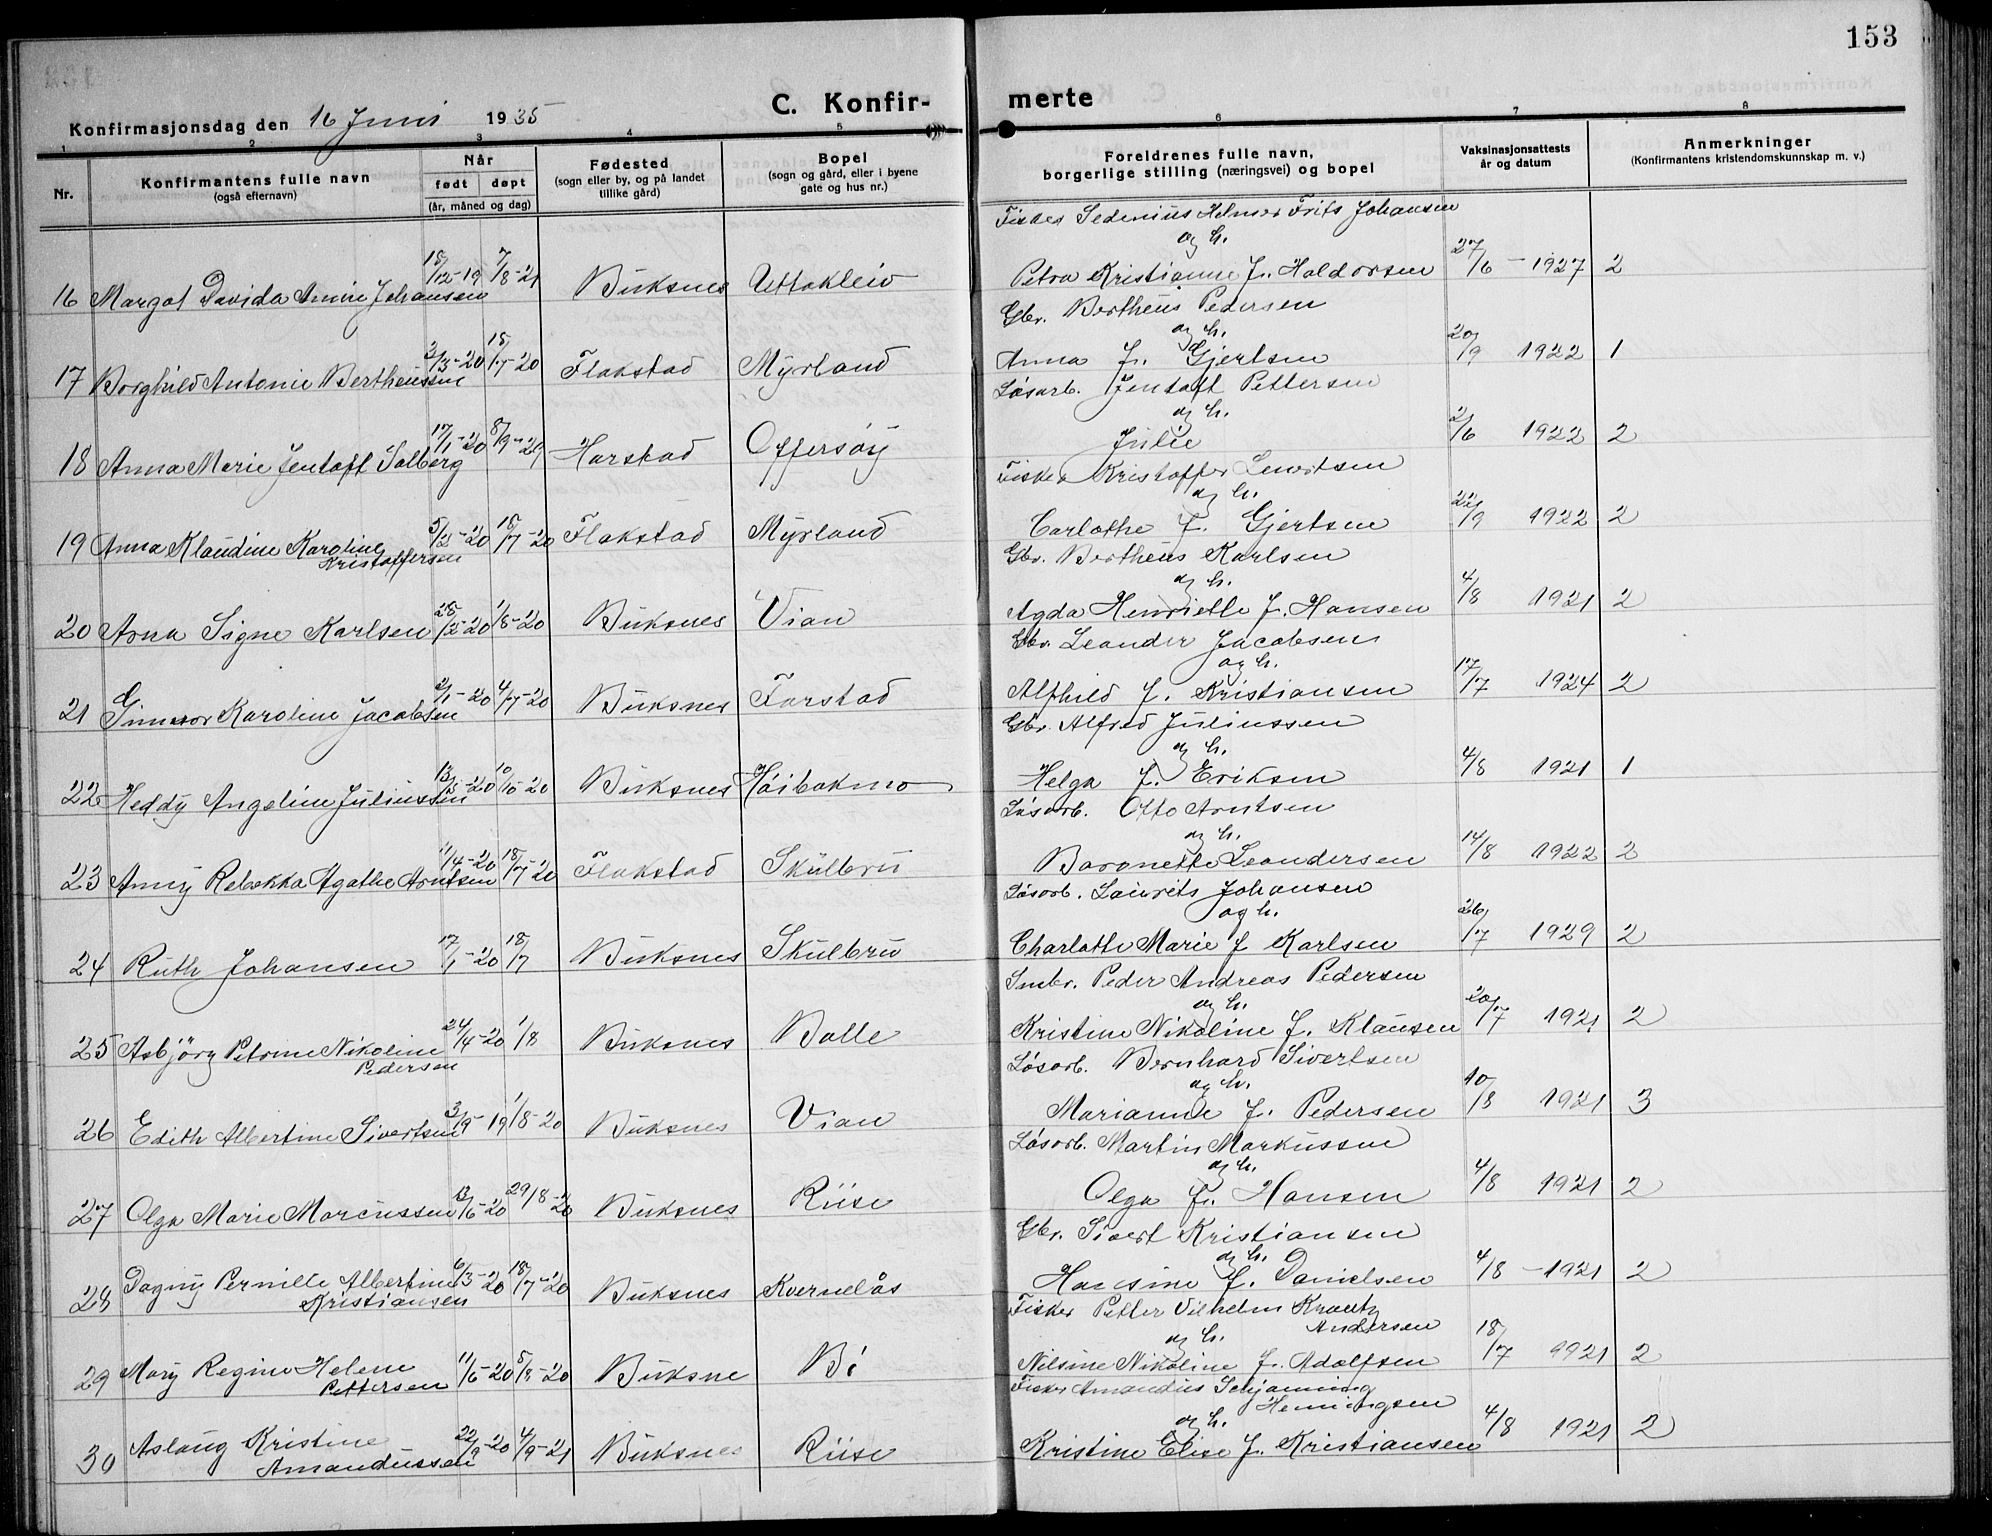 153
Konfirmasjonsdag den 16 Juni 1935
C. Konfir-
merte
1 2 3 4 5 6 7 8
Nr.
Konfirmantens fulle navn
(også efternavn)
Når
født døpt
(år, måned og dag)
Fødested
(sogn eller by, og på landet
tillike gård)
Bopel
(sogn og gård, eller i byene
gate og hus nr.)
Foreldrenes fulle navn,
borgerlige stilling (næringsvei) og bopel
Vaksinasjonsattests
år og datum
Anmerkninger
(Konfirmantens kristendomskunnskap m. v.)
Fisker Sedenius Helmer Frits Johansen
og h.
16 Margot Davida Amine Johansen 18/12-19 7/8-21 Buksnes Uttakleiv Petra Kristianne f. Haldorsen 27/6 - 1927 2
Gbr. Bertheus Pedersen
og h.
17 Borghild Antonie Bertheussen 2/3-20 18/7-20 Flakstad Myrland Anna f. Gjertsen 20/9 1922 1
Løsarb. Jentoft Pettersen
og h.
18 Anna Marie Jentoft Solberg 17/1-20 8/9-29 Harstad Offersøy Julie 2/6 1922 2
Fisker Kristoffer Lenertsen
og h.
19 Anna Klaudine Karoline 5/2-20 18/7-20 Flakstad Myrland Carlothe f. Gjertsen 22/9 1922 2
Kristoffersen
Gbr. Bertheus Karlsen
og h.
20 Arna Signe Karlsen 28/2-20 1/8-20 Buksnes Vian Agda Henriette f. Hansen 4/8 1921 2
Gbr. Leander Jacobsen
og h.
21 Gunvor Karoline Jacobsen 2/1-20 4/7-20 Buksnes Farstad Alfhild f. Kristiansen 17/7 1924 2
Gbr. Alfred Juliussen
og h.
22 Heddy Angeline Juliussen 13/5-20 10/10-20 Buksnes Høibakmo Helga f. Eriksen 4/8 1921 1
Løsarb. Otto Arntsen
og h.
23 Anny Rebekka Agathe Arntsen 11/4-20 18/7-20 Flakstad Skulbru Baronette Leandersen 14/8 1922 2
Løsarb. Laurits Johansen
og h.
24 Ruth Johansen 17/1-20 18/7 Buksnes Skulbru Charlotte Marie f Karlsen 26/7 1929 2
Smbr. Peder Andreas Pedersen
og h.
25 Asbjörg Petrine Nikoline 24/4-20 1/8 Buksnes Balle Kristine Nikoline f. Klausen 20/7 1921 2
Pedersen
Løsarb. Bernhard Sivertsen
og h.
26 Edith Albertine Sivertsen 3/9-19 1/8-20 Buksnes Vian Marianne f. Pedersen 10/8 1921 3
Løsarb. Martin Markussen
og h.
27 Olga Marie Marcussen 13/6-20 29/8-20 Buksnes Riise Olga f. Hansen 4/8 1921 2
Gbr. Sivert Kristiansen
og h.
28 Dagny Pernille Albertine 6/3-20 18/7-20 Buksnes Kvernelås Hansine f. Danielsen 4/8 - 1921 2
Kristiansen
Fisker Petter Vilhelm Krautz
Andersen
og h.
29 Mary Regine Helene 11/6-20 5/8-20 Buksne Bö Nilsine Nikoline f. Adolfsen 18/7 9921 2
Pettersen
Fisker Amandus Schjønning
Henningsen
og h.
30 Aslaug Kristine 22/9-20 4/9-21 Buksnes Riise Kristine Elise f. Kristiansen 4/8 1921 2
Amandussen